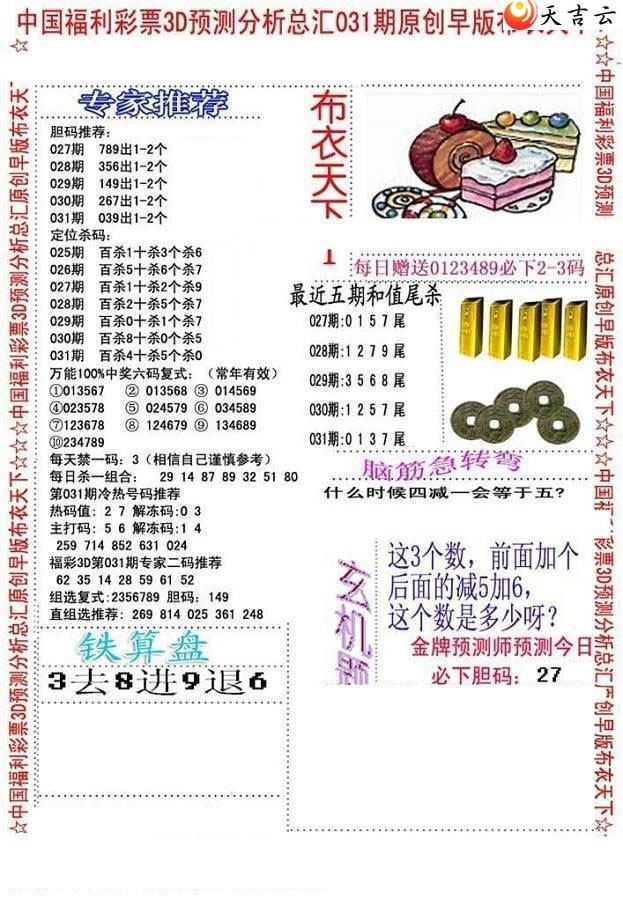 中国福利彩票3D预测分析总汇031期原创早版布衣天下
天吉云
专家推荐
胆码推荐:
027期 789出1-2个
028期 356出1-2个
029期 149出1-2个
030期 267出1-2个
031期 039出1-2个
定位杀码:
025期 百杀1十杀3个杀6
026期 百杀5十杀6个杀7
027期 百杀1十杀2个杀9
028期 百杀2十杀5个杀7
029期 百杀0十杀1个杀7
030期 百杀8十杀0个杀5
031期 百杀4十杀5个杀0
万能100%中奖六码复式:(常年有效)
①013567 ② 013568 ③ 014569
④023578 ⑤ 024579 ⑥ 034589
⑦123678 ⑧ 124679 ⑨ 134689
⑩234789
每天禁一码: 3(相信自己谨慎参考)
每日杀一组合: 29 14 87 89 32 51 80
第031期冷热号码推荐
热码值: 2 7 解冻码:0 3
主打码: 5 6 解冻码:1 4
259 714 852 631 024
福彩3D第031期专家二码推荐
62 35 14 28 59 61 52
组选复式:2356789 胆码: 149
直组选推荐: 269 814 025 361 248
铁算盘
3去8进9退6
布衣天下
1
每日赠送0123489必下2-3码
最近五期和值尾杀
027期:0 1 5 7 尾
028期:1 2 7 9 尾
029期:3 5 6 8 尾
030期:1 2 5 7 尾
031期:0 1 3 7 尾
脑筋急转弯
什么时候四减一会等于五?
玄机题
这3个数, 前面加个
后面的减5加6,
这个数是多少呀?
金牌预测师预测今日
必下胆码: 27
☆中国福利彩票3D预测分析总汇原创早版布衣天下☆☆☆中国福利彩票3D预测分析总汇原创早版布衣天
☆
☆☆中国福利彩票3D预测
总汇原创早版布衣天下☆☆☆中国福
彩票3D预测分析总汇
创早版布衣天下☆